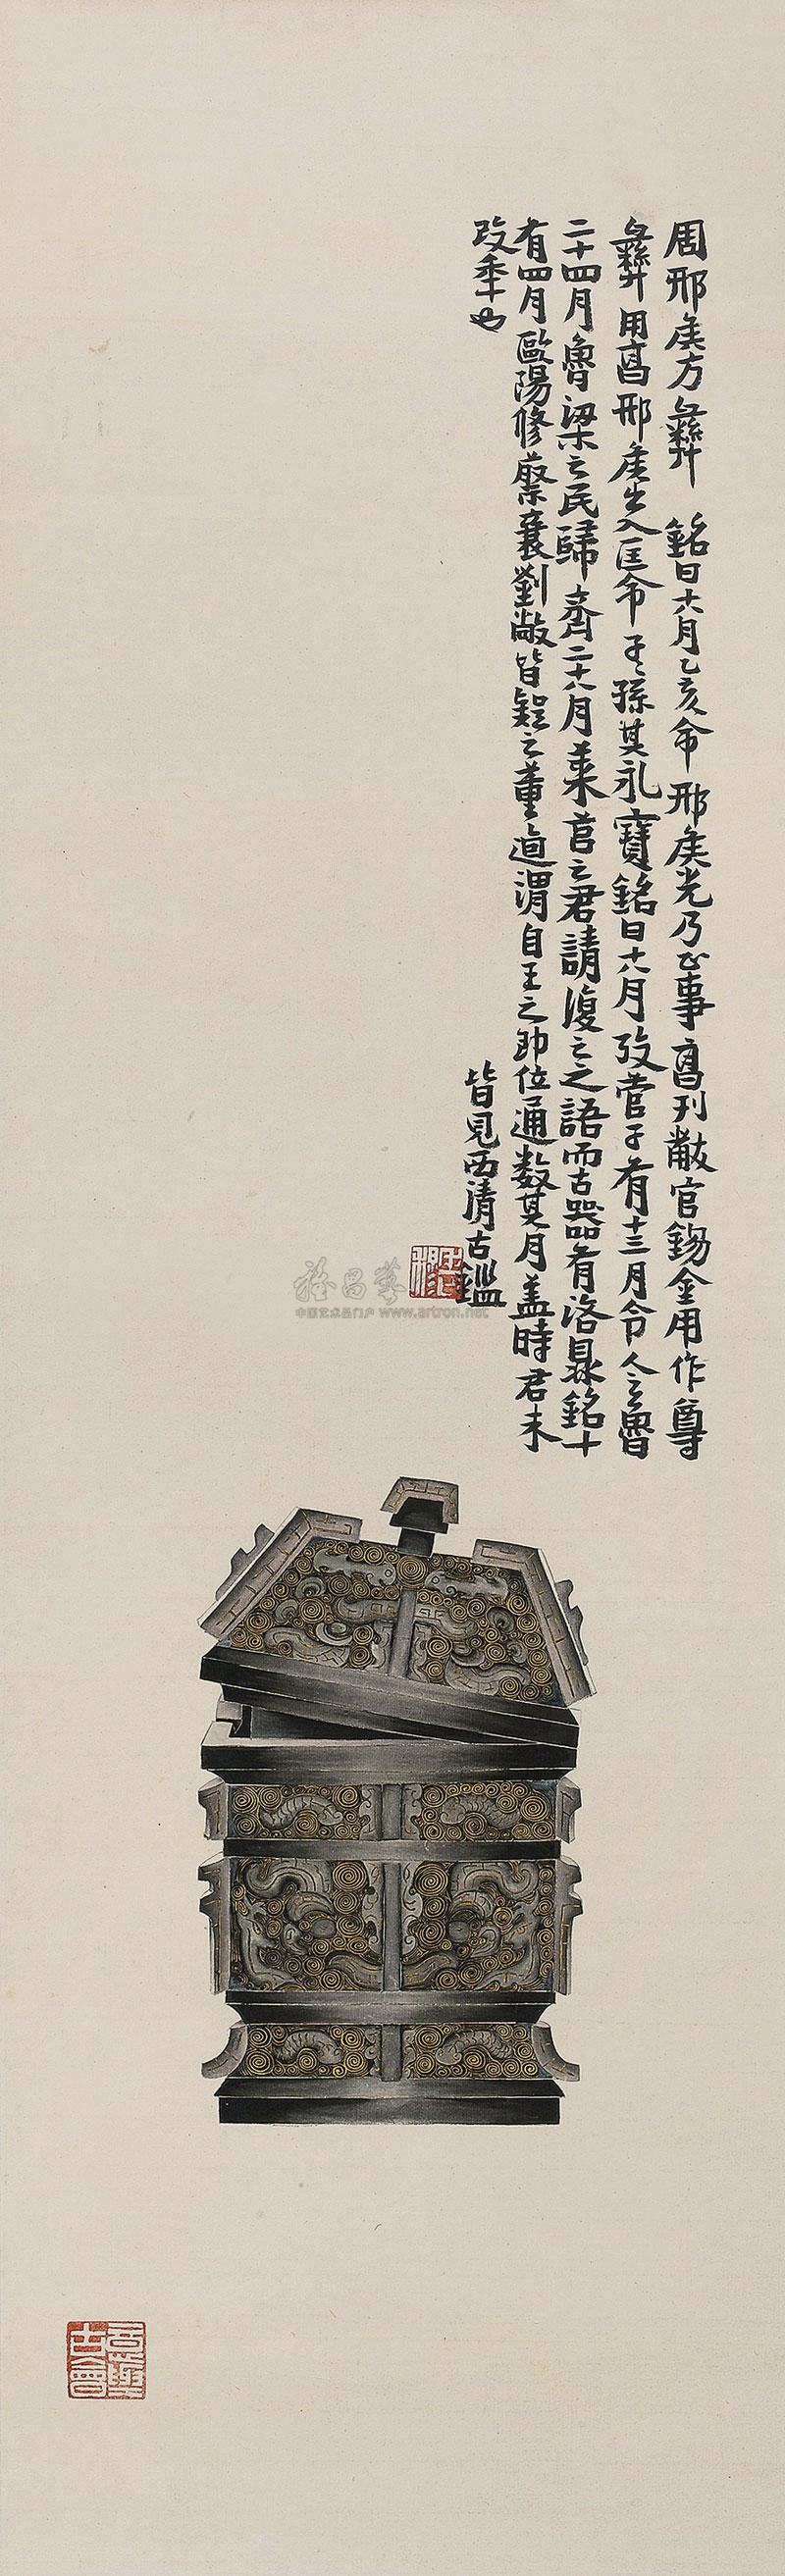 周邢侯方彝 銘曰十六月乙亥命邢侯光乃正事亯刊黻官錫金用作尊
彝用亯邢侯出入匡命子孫其永寶銘曰十六月攷管子有十三月令人之魯
二十四月魯梁之民歸齊二十八月萊莒之君請復之之語而古器有洛鼎銘十
有四月歐陽修蔡襄劉敞皆疑之董逌謂自王之即位通數其月盖時君未
改秊也
皆見西清古鑑
中国艺术品门户 www.artron.net